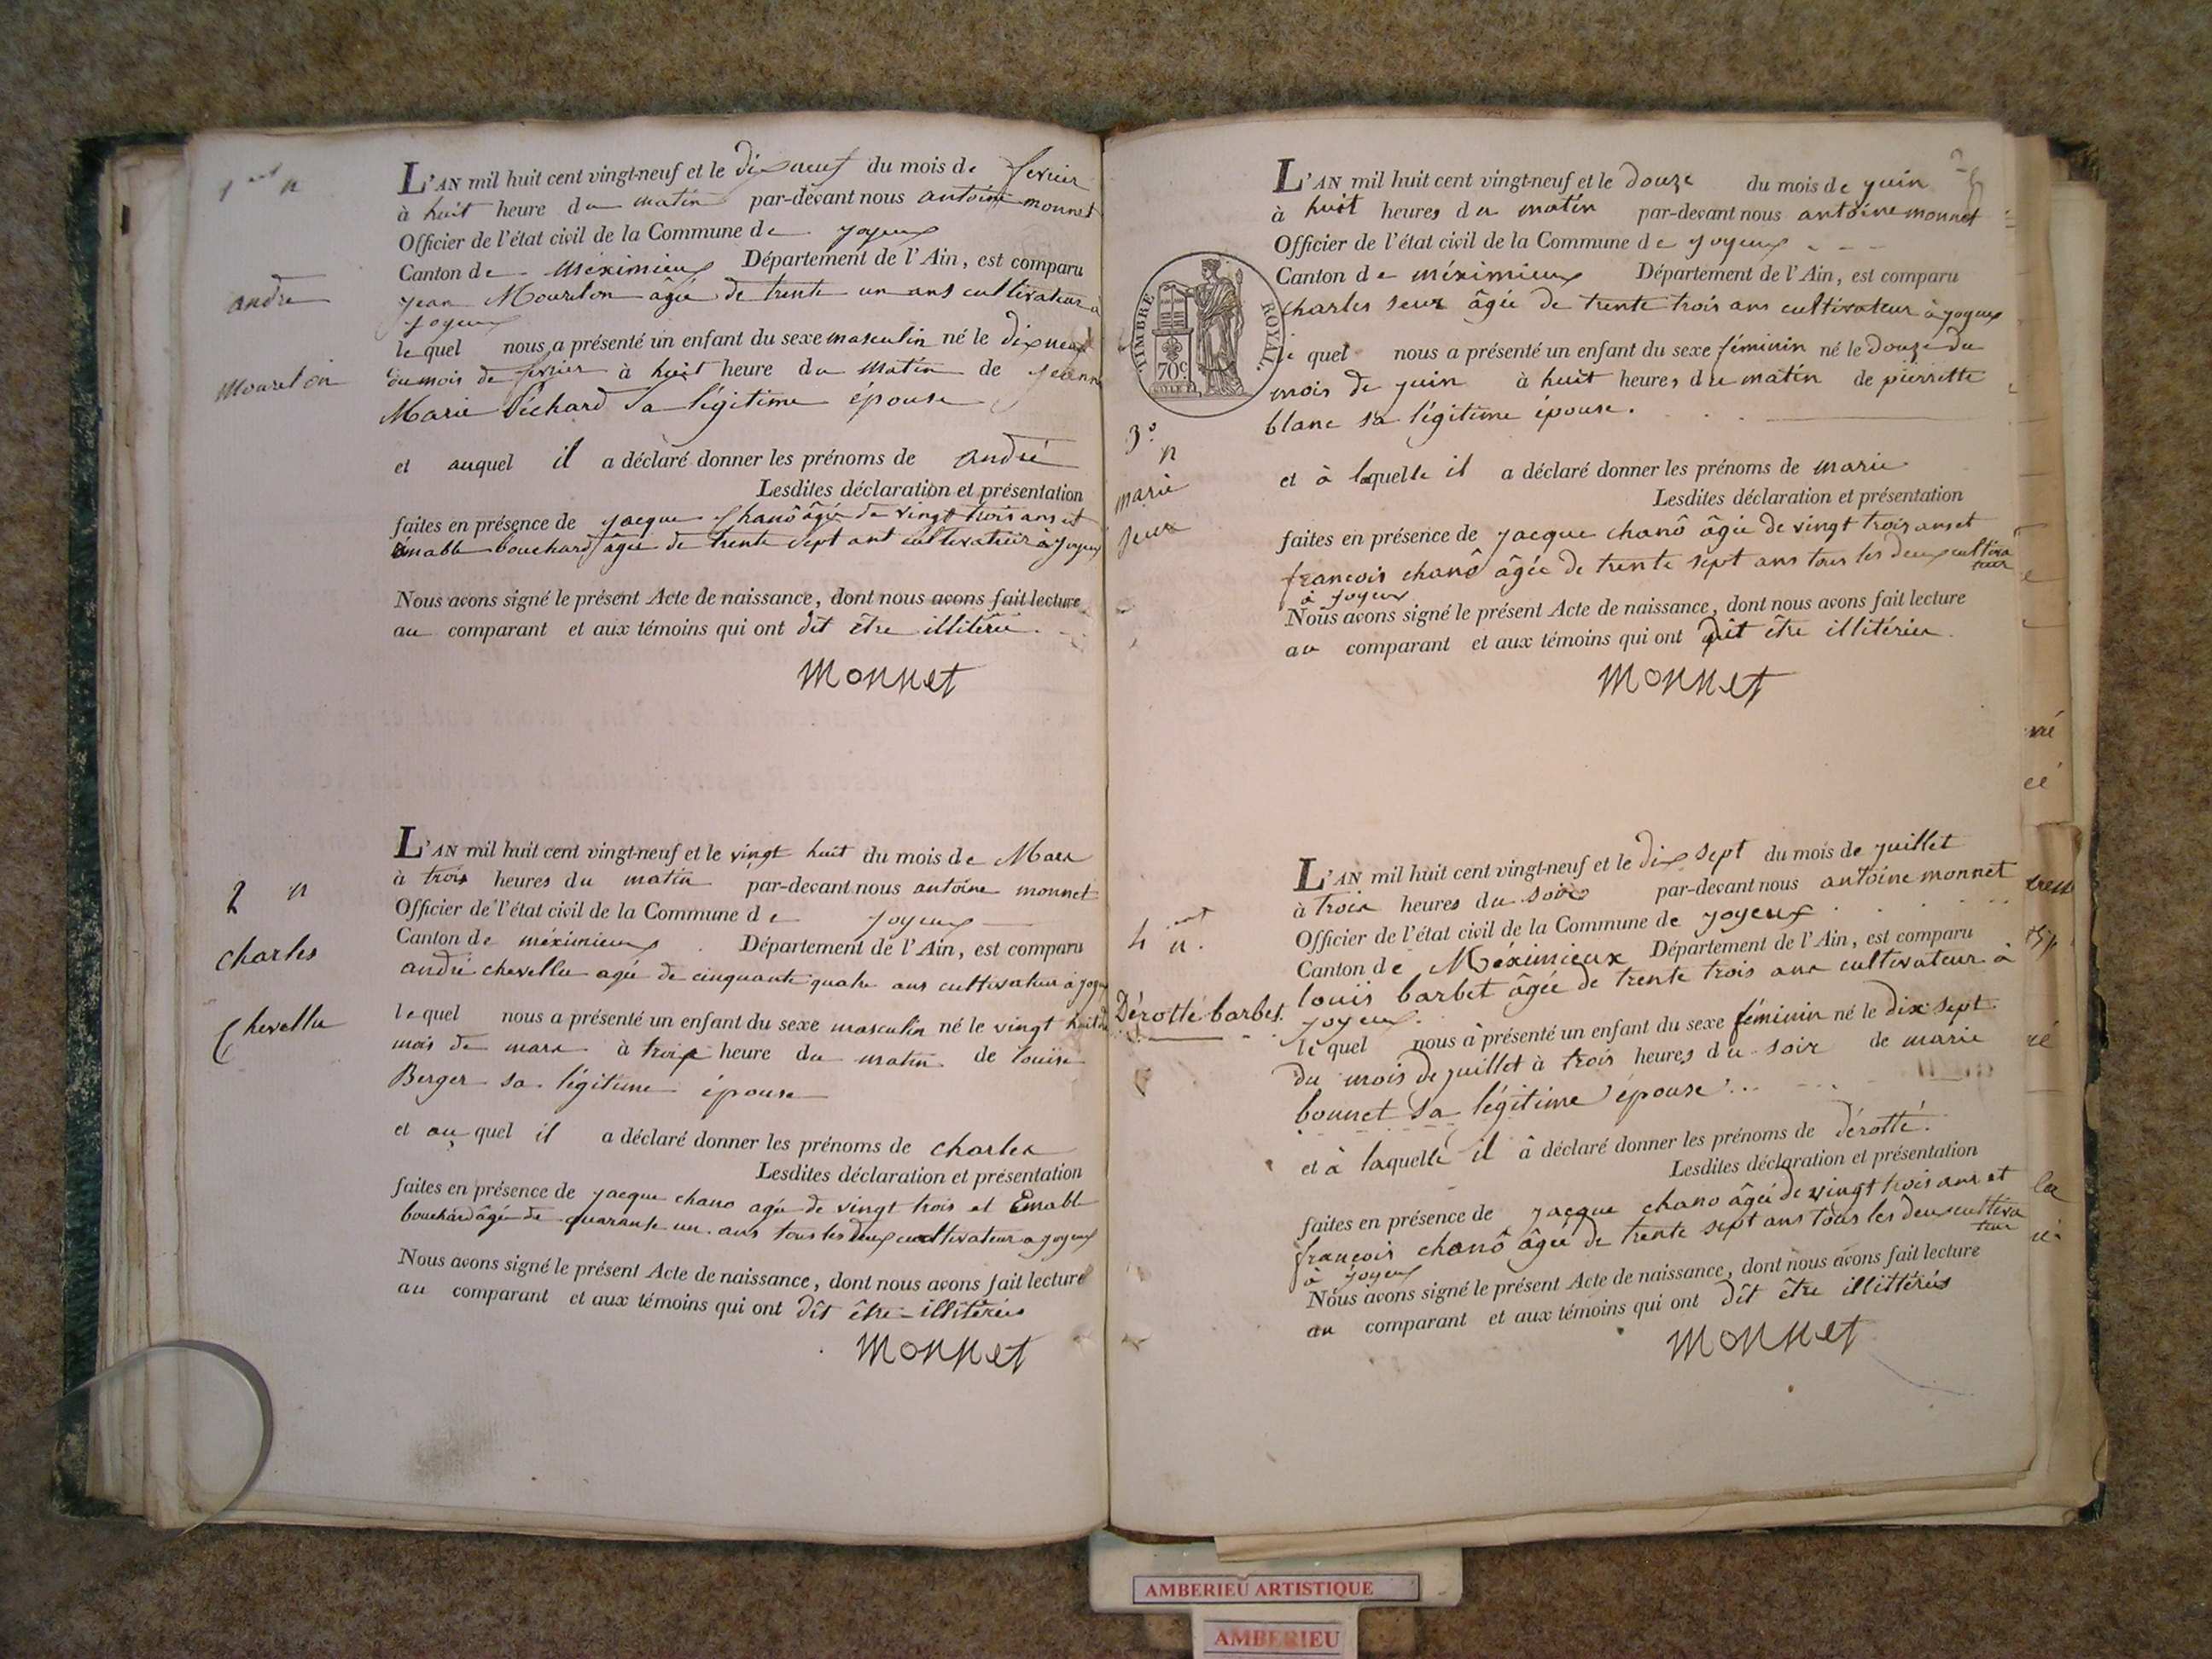 1 n
andre
Mourelon
L'AN mil huit cent vingt-neuf et le dixneuf du mois de fevrier
à huit heure du matin par-devant nous antoine monnet
Officier de l'état civil de la Commune de joyeux
Canton de Méximieux Département de l'Ain, est comparu
jean Mourelon âgée de trente un ans cultivateur à
joyeux
lequel nous a présenté un enfant du sexe masculin né le dixneuf
du mois de fevrier à huit heure du matin de jeanne
Marie Péchard Sa légitime épouse
et auquel il a déclaré donner les prénoms de andré
Lesdites déclaration et présentation
faites en présence de jacque Chanô âgée de vingt trois ans et
émable bouchard âgée de trente sept ant cultivateur a joyeux
Nous avons signé le présent Acte de naissance, dont nous avons fait lecture
au comparant et aux témoins qui ont dit être illitéré.
Monnet
2 n
charles
Chevellu
L'AN mil huit cent vingt-neuf et le vingt huit du mois de Mars
à trois heures du matin par-devant nous antoine monnet
Officier de l'état civil de la Commune de joyeux
Canton de méximieux Département de l'Ain, est comparu
andré chevellu agée de cinquante quatre ans cultivateur à joyeux
lequel nous a présenté un enfant du sexe masculin né le vingt huit du
mois de mars à trois heure du matin de louise
Berger sa légitime épouse
et au quel il a déclaré donner les prénoms de charles
Lesdites déclaration et présentation
faites en présence de jacque chano agée de vingt trois et Emable
bouchard âgée de quarante un ans tous les deux cultivateur a joyeux
Nous avons signé le présent Acte de naissance, dont nous avons fait lecture
au comparant et aux témoins qui ont dît être illitérés
Monnet
TIMBRE ROYAL.
70c
3º n
marie
seux
L'AN mil huit cent vingt-neuf et le douze du mois de juin
à huit heures du matin par-devant nous antoine monnet
Officier de l'état civil de la Commune de joyeux
Canton de méximieux Département de l'Ain, est comparu
charles seux âgée de trente trois ans cultivateur à joyeux
le quel nous a présenté un enfant du sexe féminin né le douze du
mois de juin à huit heures du matin de pierrette
blanc sa légitime épouse.
et à laquelle il a déclaré donner les prénoms de marie
Lesdites déclaration et présentation
faites en présence de jacque chanô âgée de vingt trois ans et
francois chanô âgée de trente sept ans tous les deux cultiva
teur
à joyeux
Nous avons signé le présent Acte de naissance, dont nous avons fait lecture
au comparant et aux témoins qui ont dit être illitéries.
Monnet
4 n.
Dérotté barbet.
L'AN mil huit cent vingt-neuf et le dix sept du mois de juillet
à trois heures du soir par-devant nous antoine monnet
Officier de l'état civil de la Commune de joyeux
Canton de Méximieux Département de l'Ain, est comparu
louis barbet âgée de trente trois ans cultivateur à
joyeux.
le quel nous à présenté un enfant du sexe féminin né le dix sept
du mois de juillet à trois heures du soir de marie
bonnet Sa légitime épouse
et à laquelle il â déclaré donner les prénoms de dérotté.
Lesdites déclaration et présentation
faites en présence de jacque chano âgée de vingt trois ans et
francois chanô âgée de trente sept ans tous les deux cultiva
teur
à joyeux
Nous avons signé le présent Acte de naissance, dont nous avons fait lecture
au comparant et aux témoins qui ont dît être illittérés
Monnet
AMBERIEU ARTISTIQUE
AMBERIEU